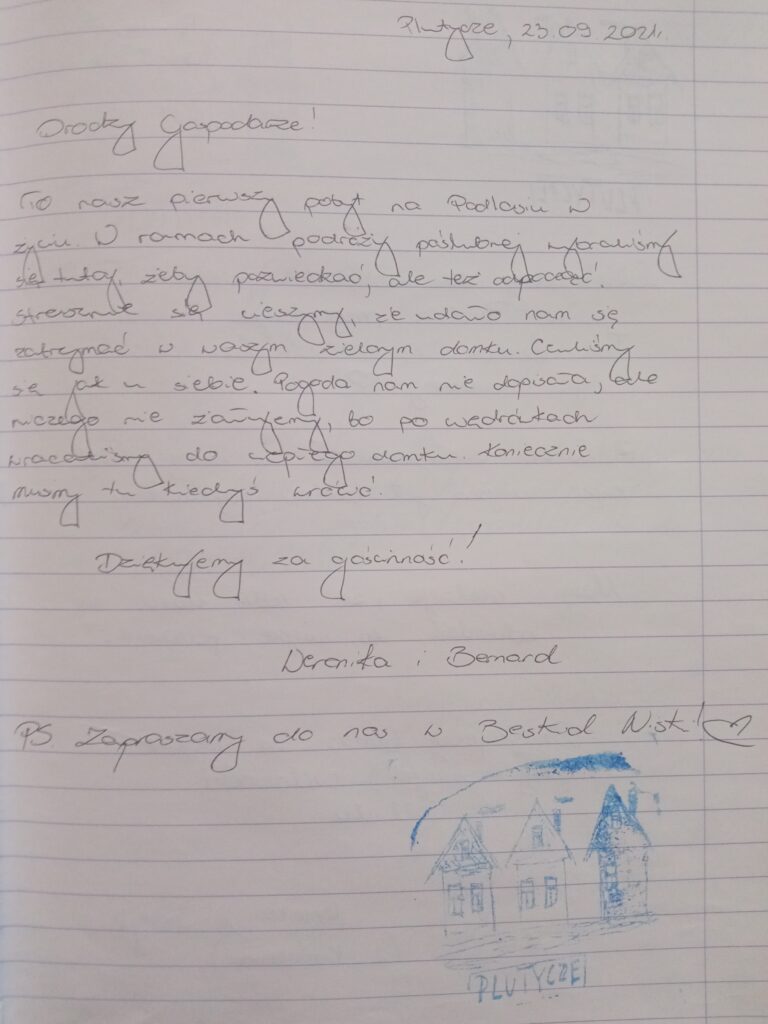 Plutycze, 23.09.2021r.
Drodzy Gospodarze!
To nasz pierwszy pobyt na Podlasiu w
życiu. W ramach podróży poślubnej wybraliśmy
się tutaj, żeby pozwiedzać, ale też odpocząć.
Strasznie się cieszymy, że udało nam się
zatrzymać w waszym zielonym domku. Czuliśmy
się jak u siebie. Pogoda nam nie dopisała, ale
niczego nie żałujemy, bo po wędrówkach
wracaliśmy do ciepłego domku. Koniecznie
musimy tu kiedyś wrócić.
Dziękujemy za gościnność!
Weronika i Bernard
PS. Zapraszamy do nas w Beskid Niski!
PLUTYCZE